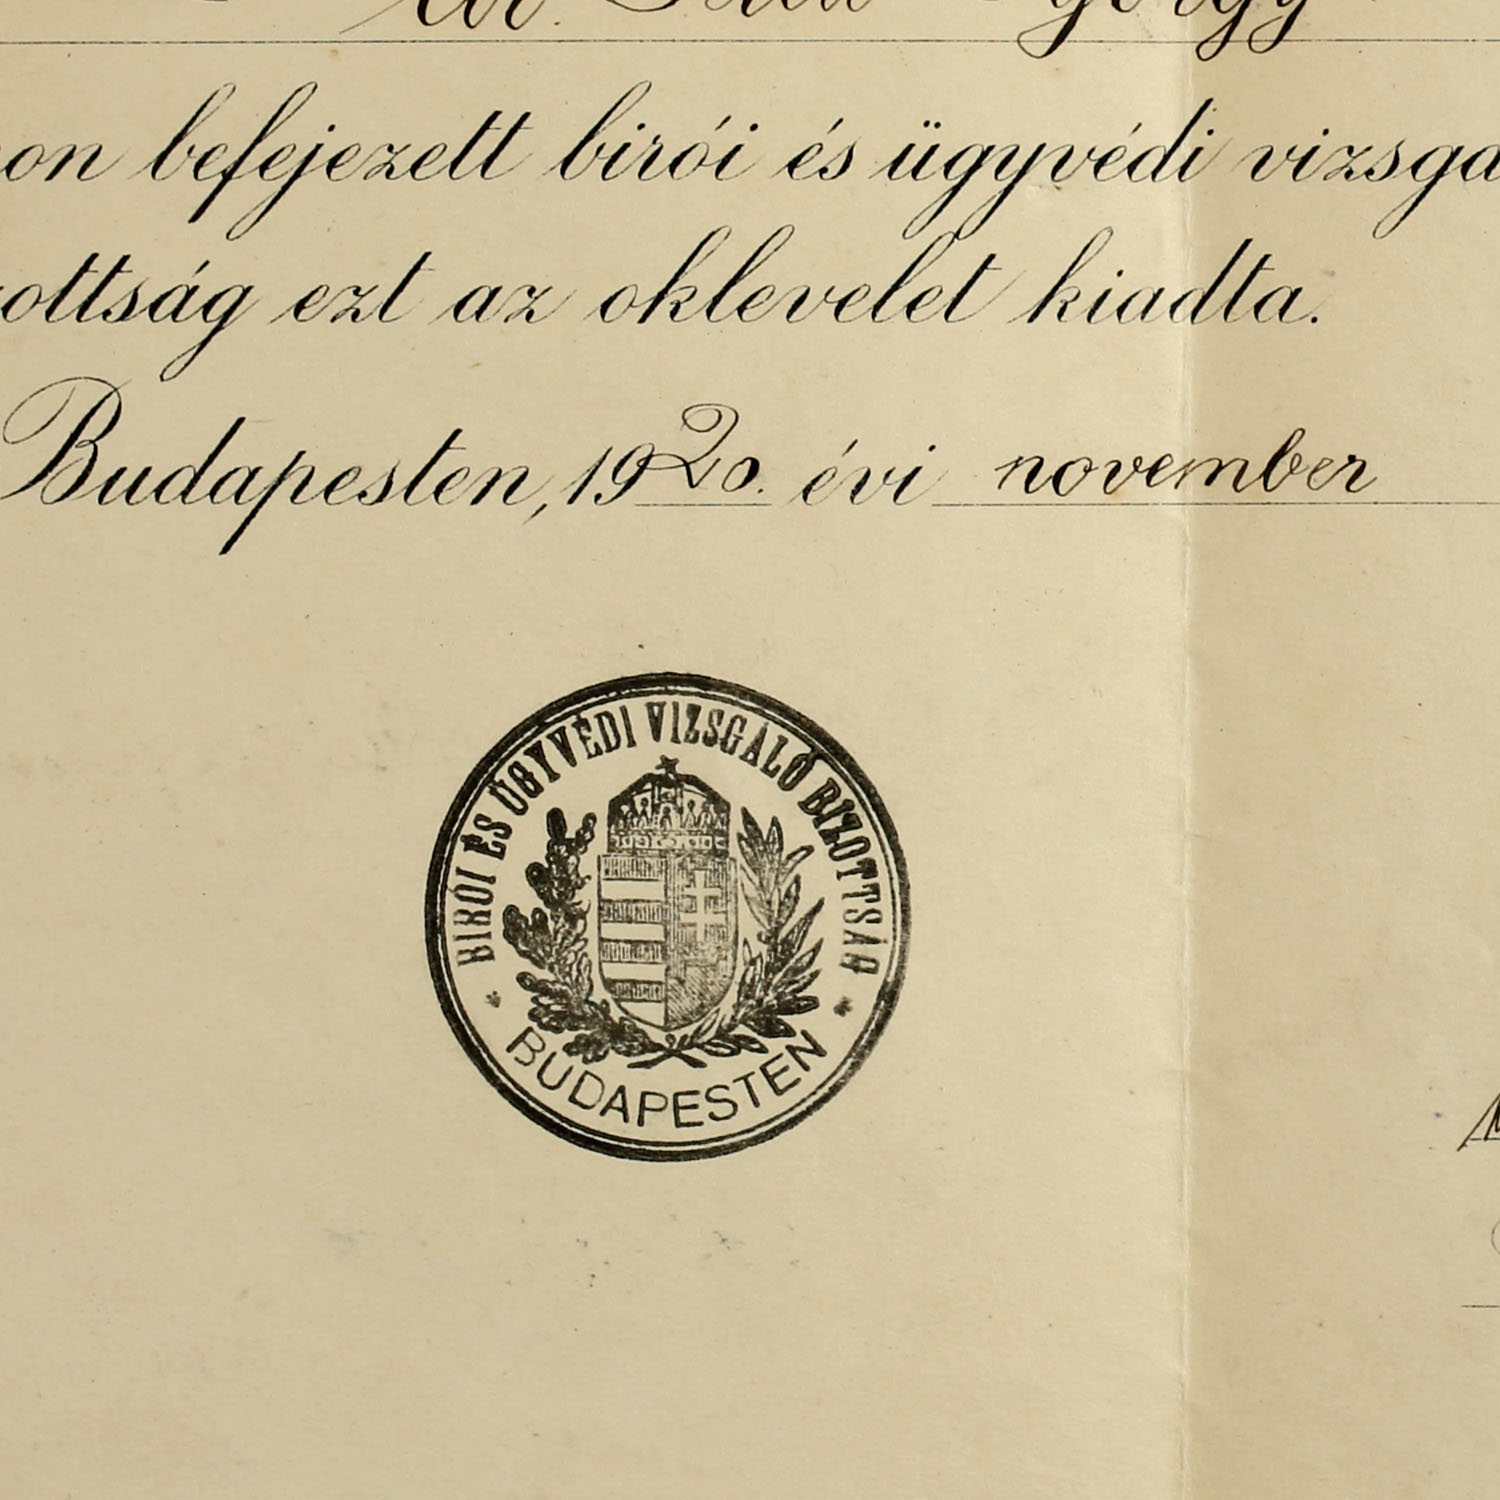 György
on befejezett birói és ügyvédi vizsga
ottság ezt az oklevelet kiadta.
Budapesten, 1920. évi november
BIRÓI ÉS ÜGYVÉDI VIZSGÁLÓ BIZOTTSÁG
BUDAPESTEN